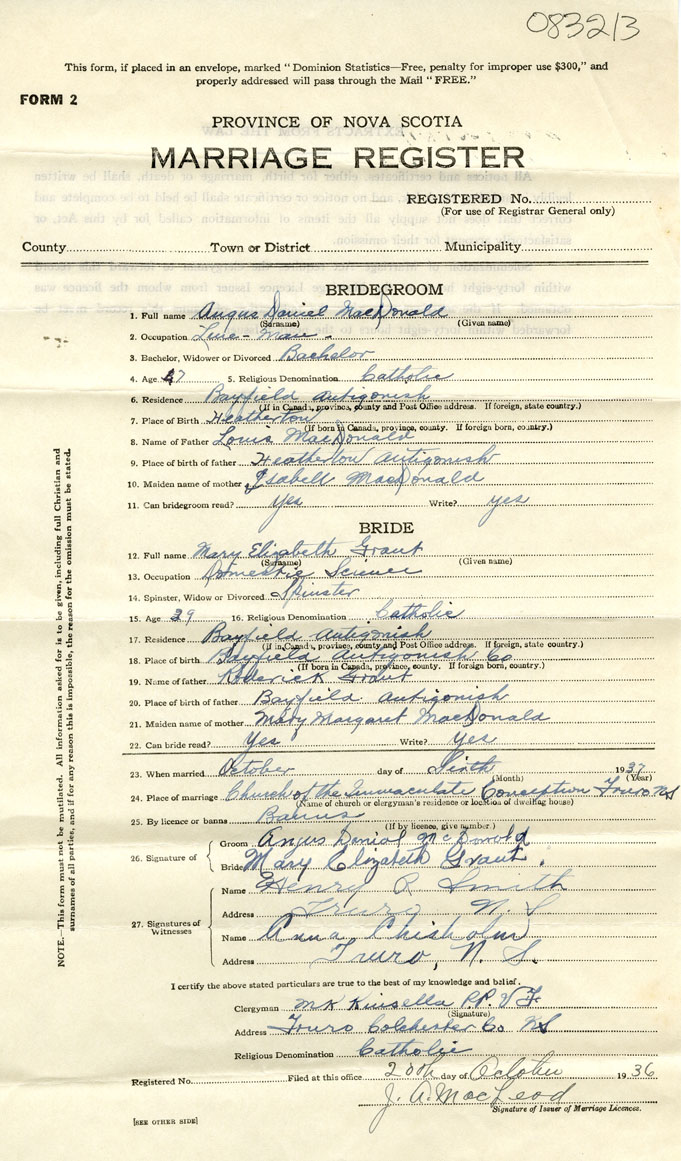 083213
This form, if placed in an envelope, marked "Dominion Statistics—Free, penalty for improper use $300," and
properly addressed will pass through the Mail "FREE."
FORM 2
PROVINCE OF NOVA SCOTIA
MARRIAGE REGISTER
REGISTERED No.
(For use of Registrar General only)
County Town or District Municipality
BRIDEGROOM
1. Full name Angus Daniel MacDonald
(Surname) (Given name)
2. Occupation Line-Man
3. Bachelor, Widower or Divorced Bachelor
4. Age 47 5. Religious Denomination Catholic
6. Residence Bayfield Antigonish
(If in Canada, province, county and Post Office address. If foreign, state country.)
7. Place of Birth Heatherton
(If born in Canada, province, county. If foreign born, country.)
8. Name of Father Louis MacDonald
9. Place of birth of father Heatherton Antigonish
10. Maiden name of mother Isabell MacDonald
11. Can bridegroom read? Yes Write? yes
BRIDE
12. Full name Mary Elizabeth Grant
(Surname) (Given name)
13. Occupation Domestic Science
14. Spinster, Widow or Divorced Spinster
15. Age 39 16. Religious Denomination Catholic
17. Residence Bayfield Antigonish
(If in Canada, province, county and Post Office address. If foreign, state country.)
18. Place of birth Bayfield Antigonish Co
(If born in Canada, province, county. If foreign born, country.)
19. Name of father Roderick Grant
20. Place of birth of father Bayfield Antigonish
21. Maiden name of mother Mary Margaret MacDonald
22. Can bride read? Yes Write? Yes
23. When married October day of Sixth 1937
(Month) (Year)
24. Place of marriage Church of the Immaculate Conception Truro NS
(Name of church or clergyman's residence or location of dwelling house)
25. By licence or banns Banns
(If by licence, give number.)
26. Signature of
Groom Angus Danial McDonald
Bride Mary Elizabeth Grant.
27. Signatures of Witnesses
Name Henry R Smith
Address Truro N.S
Name Anna Chisholm
Address Truro, N.S.
I certify the above stated particulars are true to the best of my knowledge and belief.
Clergyman MK Kinsella P.P. V F.
(Signature)
Address Truro Colchester Co NS
Religious Denomination Catholic
Registered No. Filed at this office 20th day of October 1936
J. A. MacLeod
Signature of Issuer of Marriage Licences.
[SEE OTHER SIDE]
NOTE.—This form must not be mutilated. All information asked for is to be given, including full Christian and
surnames of all parties, and if for any reason this is impossible, the reason for the omission must be stated.